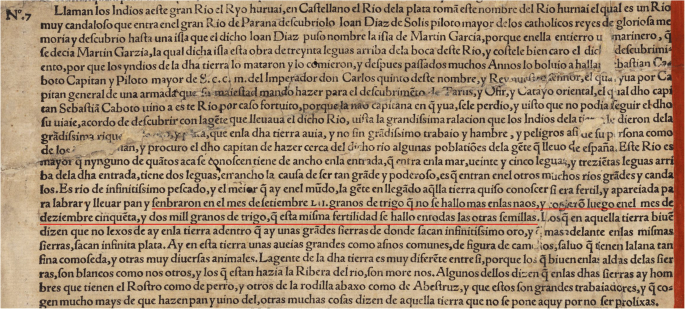 Nº.7
Llaman los Indios a este gran Rio el Ryo huruai, en Castellano el Rio dela plata toma este nombre del Rio hurnai el qual es un Rio
muy candaloso que entra en el gran Rio de Parana descubriolo Ioan Diaz de Solis piloto mayor de los catholicos reyes de gloriosa me
moria y descubrio hasta una isla que el dicho Ioan Diaz puso nombre la isla de Martin Garcia, porque en ella entierro u marinero, q̃
se decia Martin Garzia, la qual dicha isla esta obra de treynta leguas arriba dela boca deste Rio, y costele bien caro el dic descubrimi-
ento, por que los yndios de la dha tierra lo mataron y lo comieron, y despues passados muchos Annos lo boluio a halla bastian Ca-
boto Capitan y Piloto mayor de S.c.c.m. del Imperador don Carlos quinto deste nombre, y Rey señor, el qu yua por Ca
pitan general de una armada que su maiestad mando hazer para el descubrimiẽto de Tarsis, y Ofir, y Catayo oriental, el qual dho capi
tan Sebastiã Caboto uino a este Rio por caso fortuito, porque la nao capitana en q̃ yua, se le perdio, y uisto que no podia seguir el dho
su uiaie, acordo de descubrir con la gẽte que lleuaua el dicho Rio, uista la grandissima ralacion que los Indios dela le dieron dela
grãdissima rique que en la dha tierra auia, y no sin grãdissimo trabaio y hambre, y peligros asi de su persona como
de los y procuro el dho capitan de hazer cerca del di ho rio algunas poblatiões dela gẽte q̃ lleuo de españa. Este Rio es
mayor q̃ nynguno de quãtos aca se conoscen tiene de ancho en la entrada, q̃ entra en la mar, ueinte y cinco legua y trezietas leguas arri
ba dela dha entrada, tiene dos leguas, la causa de ser tan grãde y poderoso, es q̃ entran en el otros muchos rios grãdes y canda
los. Es rio de infinitissimo pescado, y el meior q̃ ay en el mũdo, la gẽte en llegãdo aq̃lla tierra quiso conoscer si era fertil, y apareciada pa
ra labrar y lleuar pan y senbraron en el mes de setiembre LII. granos de trigo q̃ no se hallo mas en las naos, y luego en el mes de
deziembre cinquẽta, y dos mill granos de trigo, q̃ esta misma fertilidad se hallo en todas las otras semillas. Los q̃ en aquella tierra biuẽ
dizen que no lexos de ay en la tierra adentro q̃ ay unas grãdes sierras de donde sacan infinitissimo oro, y mas adelante en las mismas
sierras, sacan infinita plata. Ay en esta tierra unas aueias grandes como asnos comunes, de figura de camel os, saluo q̃ tienen la lana tan
fina como seda, y otras muy diuersas animales. La gente de la dha tierra es muy diferẽte entre si, porque los q̃ biuen en las aldas de las sier
ras, son blancos como nos otros, y los q̃ estan hazia la Ribera del rio, son more nos. Algunos dellos dizen q̃ en las dhas sierras ay hom
bres que tienen el Rostro como de perro, y otros de la rodilla abaxo como de Abestruz, y q̃ estos son grandes trabaiadores, y q̃ co-
gen mucho mays de que hazen pan y uino del, otras muchas cosas dizen de aquella tierra que no se pone aquy por no ser prolixas.